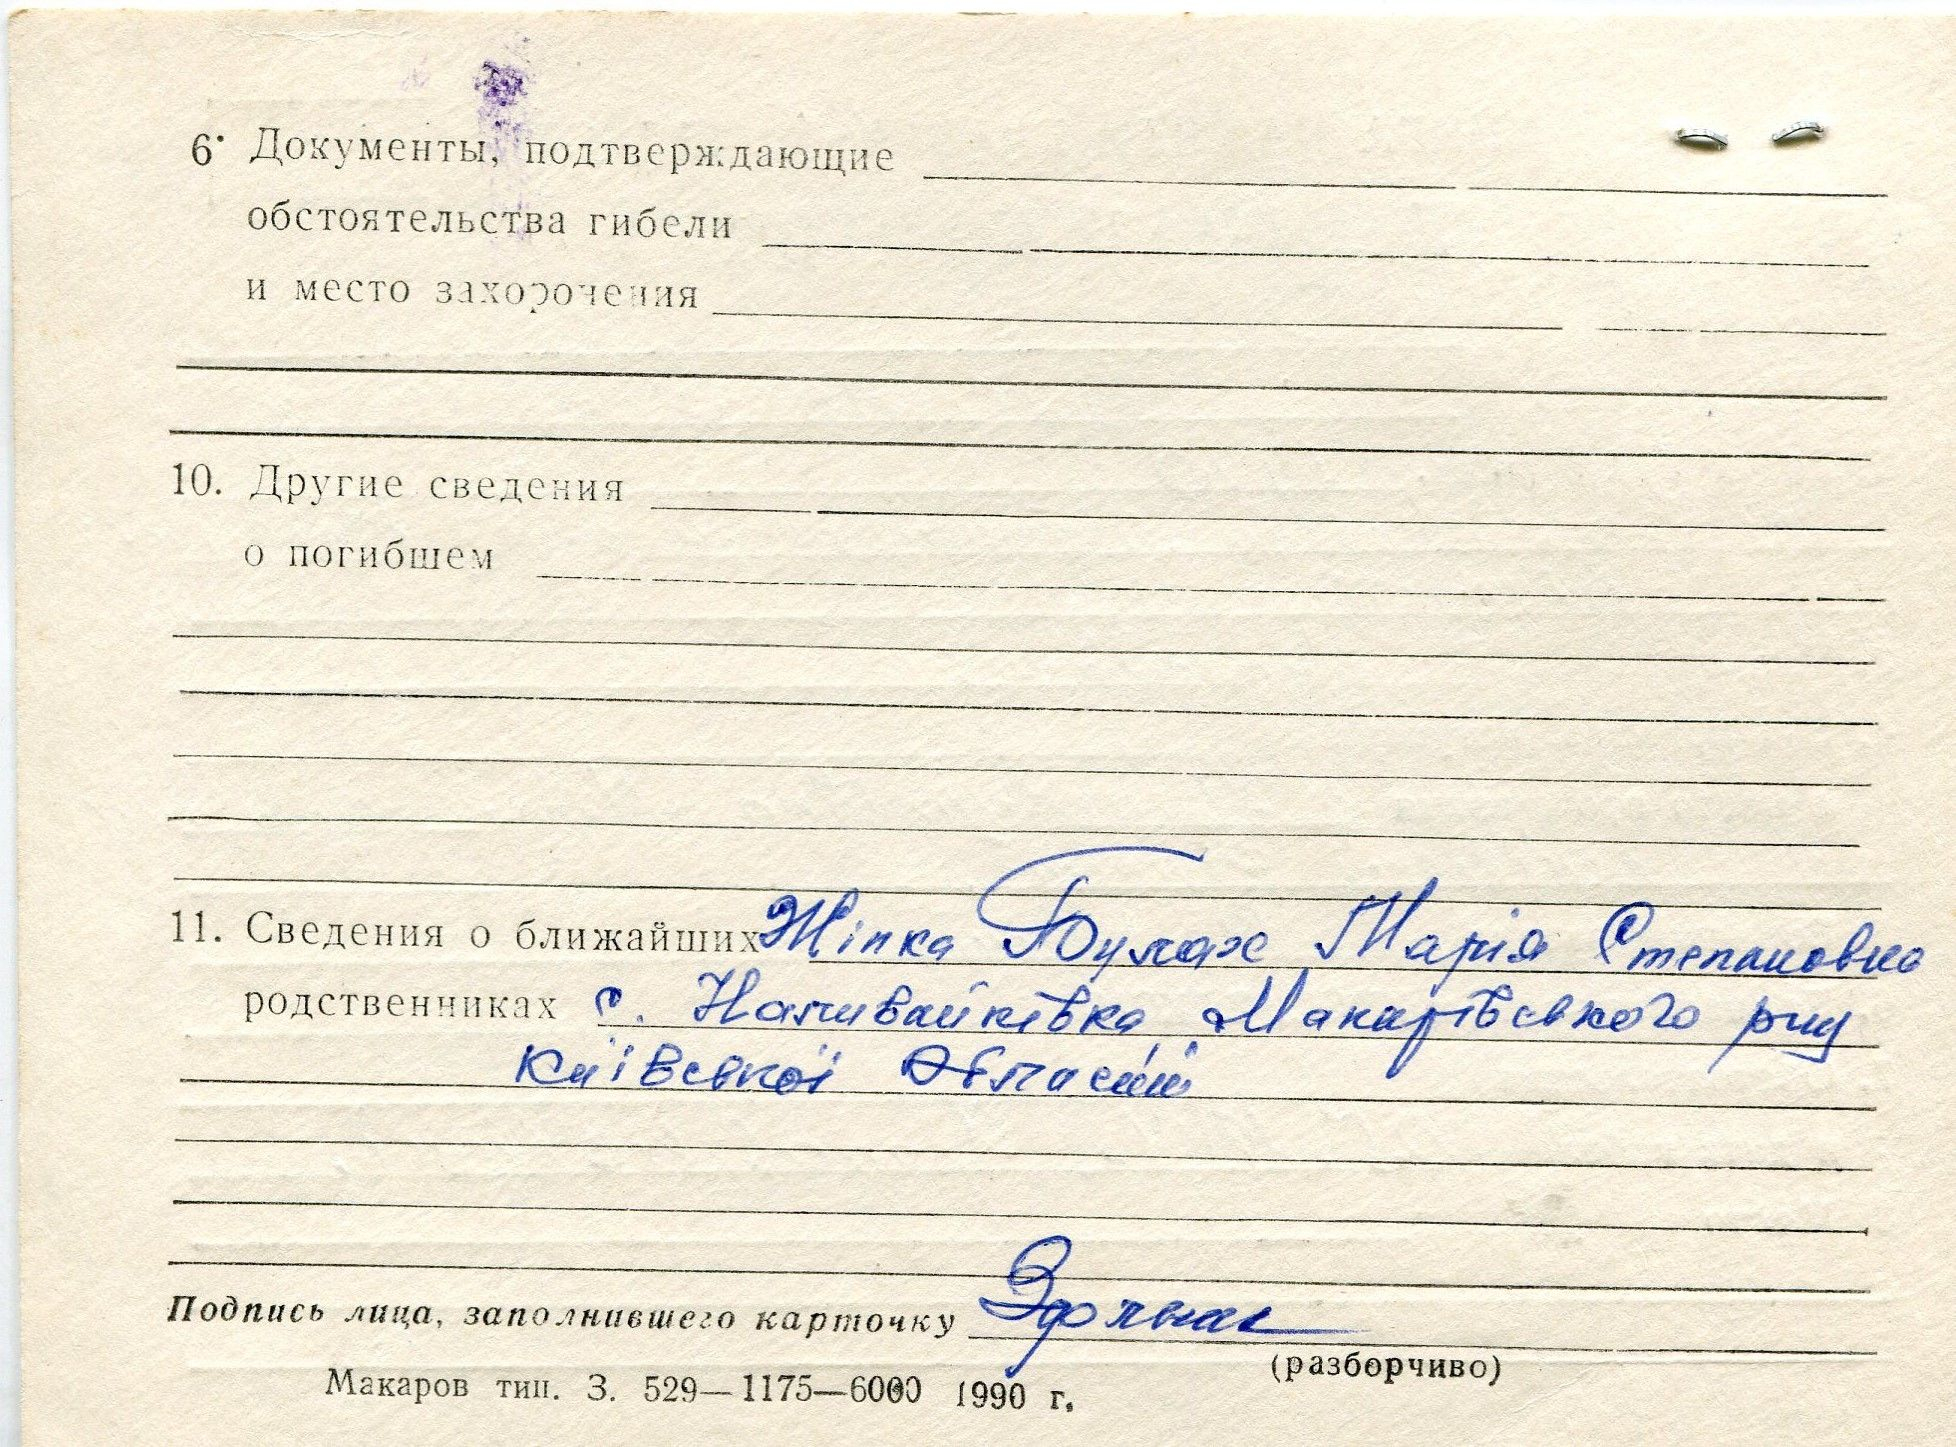 6. Документы, подтверждающие
обстоятельства гибели
и место захоронения
10. Другие сведения
о погибшем
11. Сведения о ближайших Жінка Булах Марія Степановна
родственниках с. Наливайківка Макарівського р-ну
Київської області
Подпись лица, заполнившего карточку
(разборчиво)
Макаров тип. З. 529—1175—6000 1990 г.